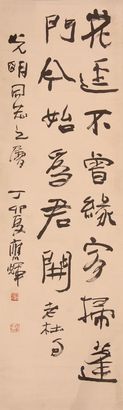 花径不曾缘客掃蓬
門今始為君開老杜句
光明同志之屬
丁卯夏